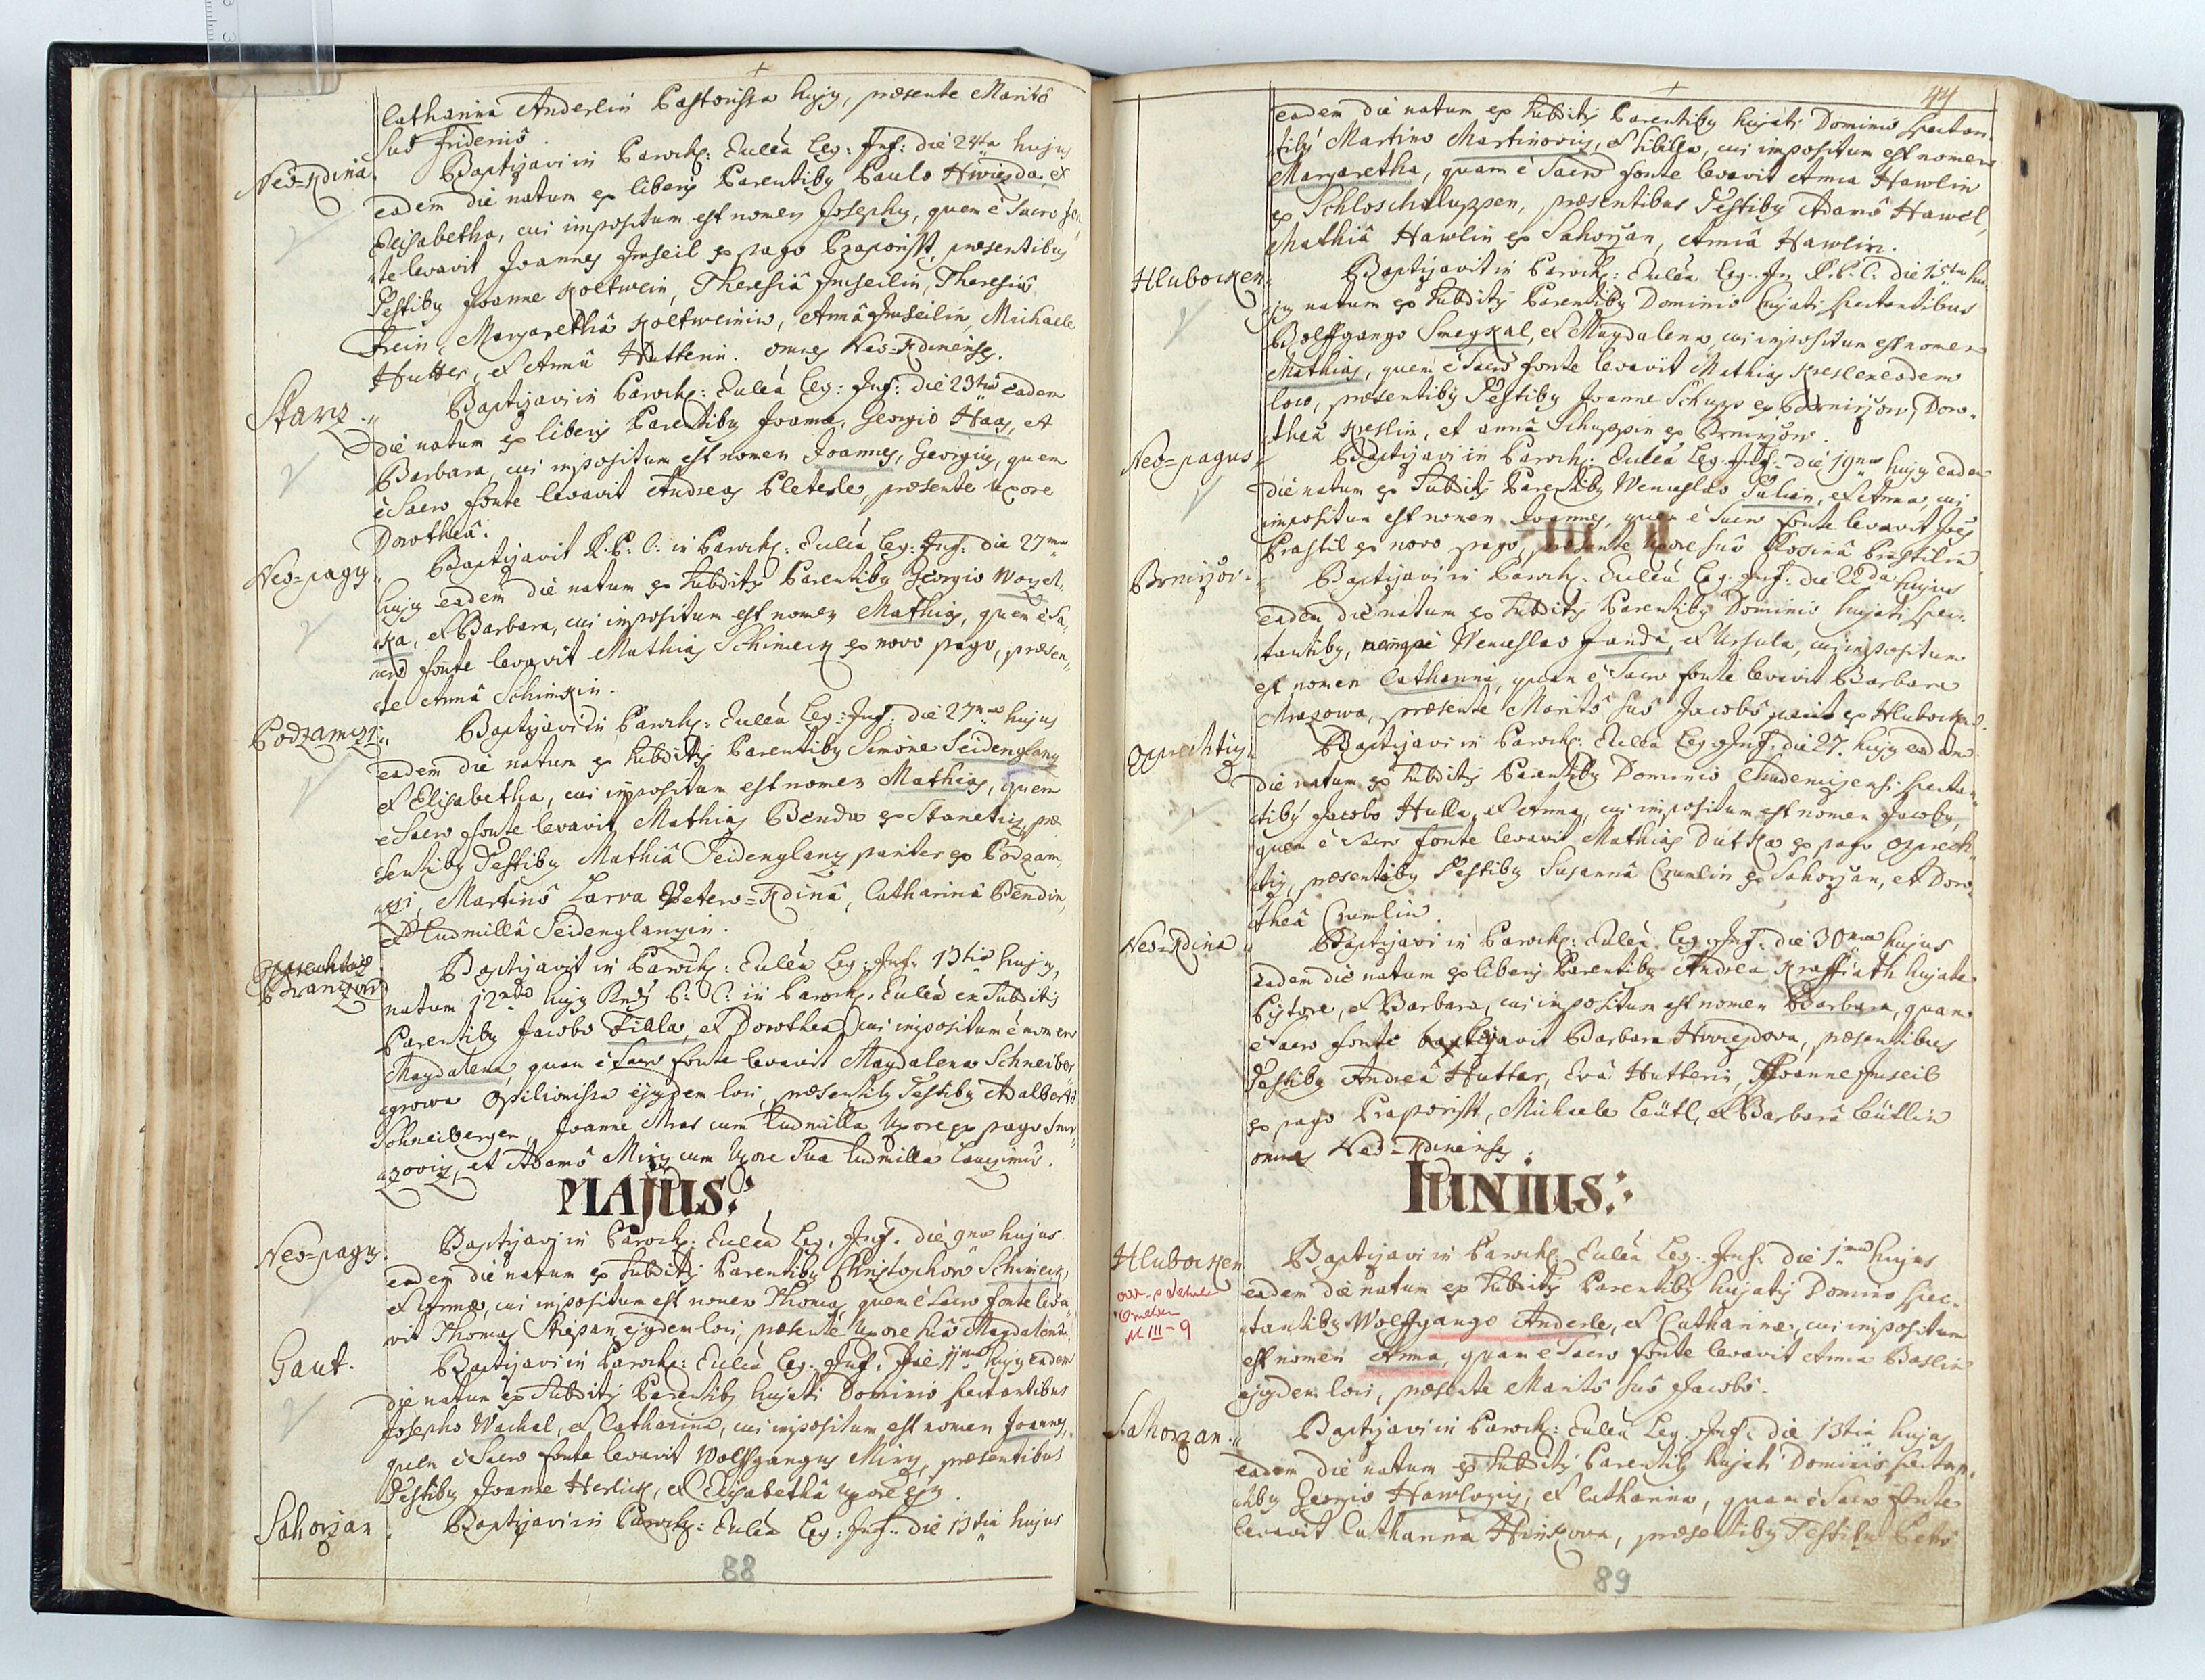 Catharina Anderlin Pastorissa hujg, præsente Maritô
suô Fridericô.
Neo=Kdina. Baptizavi in Paroch: Eulèa Leg: Inf: die 24ta hujus
eadem die natum ex liberis Parentibg Paulo Hwiezda, et
Elisabetha, cui impositum est nomen Josephg, quem è Sacro fon,,
te levavit Joannes Imseil ex pago Praporischt, præsentibus
Testibg Joanne Koltwein, Theresiâ Imseilin, Theresiâ
Frein, Margarethâ Koltweinin, Annâ Imseilin, Michaele
Hutter, et Annâ Hutterin. omnes Neo=Kdinenses.
Stanz. Baptizavi in Paroch: Eulèa Leg: Inf: die 23tia eadem
die natum ex liberis Parentibg Joanne, Georgio Haas, et
Barbara, cui impositum est nomen Joannes, Georgig, quem
è Sacro fonte levavit Andreas Pleterle, præsente Uxore
Dorothea.
Neo=pagg Baptizavit R.P.C: in Paroch: Eulèa Leg: Inf: die 27ma
hujg eadem die natum ex subditis Parentibg Georgio Woyet,,
ska, et Barbara, cui impositum est nomen Mathias, quem è Sa,,
cro fonte levavit Mathias Schimeck ex novo pago, præsen,,
te Annâ Schimkin.
Podzamczi Baptizavi in Paroch: Eulèa Leg: Inf: die 27ma hujus
eadem die natum ex subditis Parentibg Simone Seidenglanz
et Elisabetha, cui impositum est nomen Mathias, quem
è Sacro fonte levavit Mathias Benda ex Stanetiz, præ
sentibg Testibg Mathiâ Seidenglanz pariter ex Podzam,,
czi, Martinô Larva Vetero=Kdinâ, Catharinâ Bendin,
et Ludmillâ Seidenglanzin.
Baptizavit in Paroch: Eulèa Leg: Inf: 13tia hujg,
natum 12mo hujg Rndg P: C: in Paroch: Eulèa ex subditis
Parentibg Jacobo Fiala, et Dorothea, cui impositum è nomen
Magdalena, quam è Sacro fonte levavit Magdalena Schneiber,,
growa Opilionissa ejgdem loci, præsentibg Testibg Adalbertô
Schneiberger, Joanne Mras cum Ludmilla Uxore ex pago Smr,,
zowiz, et Adamô Mirz cum Uxore sua Ludmilla
MAJUS:
Neo=pagg. Baptizavi in Paroch: Eulèa Leg: Inf: die 9na hujus
eadem die natum ex subditis Parentibg Christophorô Schimeck,
et Anna, cui impositum est nomen Thomas, quem è Sacro fonte leva,,
vit Thomas Stiepan ejgdem loci, præsente Uxore suâ Magdalena.
Gaut. Baptizavi in Paroch: Eulèa Leg: Inf: Die 11ma hujg eadem
die natum ex subditis Parentibg hujati Dominio spectantibus
Josepho Wachal, et Catharina, cui impositum est nomen Joannes,
quem è Sacro fonte levavit Wolfgangus Mirz, præsentibus
Testibg Joanne Herlick, et Elisabethâ uxore ejg.
Sahorzan. Baptizavi in Paroch: Eulèa Leg: Inf: die 13tia hujus
88
44
eadem die natum ex subditis Parentibg hujati Dominio spectan,,
tibg Martino Martinowiz, et Sibilla, cui impositum est nomen
Margaretha, quam è Sacro fonte levavit Anna Hawlin
ex Schloschaluppen, præsentibus Testibg Adamô Hawel,
Mathiâ Hawlin ex Sahorzan, Annâ Hawlin.
Hluboken Baptizavit in Paroch: Eulèa Leg: In R.P.C. die 15ta hu,,
jg natum ex subditis Parentibg Dominio hujati spectantibus
Wolffgango Smezkal, et Magdalena, cui impositum est nomen
Mathias, quem è Sacro fonte levavit Mathias Kreslex eodem
loco, præsentibg Testibg Joanne Schupp ex Brnirzow, Doro,,
theâ Kreslin, et annâ Schuppin ex Brnirzow.
Neo=pagus Baptizavi in Paroch: Eulèa Leg: Inf: die 19na hujg eadem
die natum ex subditis Parentibg Wenceslao Julian, et Anna, cui
impositum est nomen Joannes, quem è Sacro fonte levavit Jos
Prastil ex novo pago, præsente uxore suâ Rosina Prastilin
Brnirzov. Baptizavi in Paroch: Eulèa Leg: Inf: die 22da hujus
eadem die natum ex subditis Parentibg Dominio hujati spec,,
tantibg, nempe Wenceslao Janda, et Ursula, cui impositum
est nomen Catharina, quam è Sacro fonte levavit Barbara
Mrazowa, præsente Maritô suô Jacobô ex Hluboken.
Oprechtiz. Baptizavi in Paroch: Eulèa Leg: Inf: die 27. hujg eadem
die natum ex subditis Parentibg Dominio Chudenizensi spectan,,
tibg Jacobo Hulla, et Anna, cui impositum est nomen Jacobg,
quem è Sacro fonte levavit Mathias Dutka ex pago Oprech,,
tiz, præsentibg Testibg Susannâ Czumlin ex Sahorzan, et Doro,,
theâ Czumlin.
Neo=Kdina Baptizavi in Paroch: Eulèa Leg: Inf: die 30ma hujus
eadem die natum ex liberis Parentibg Andrea Kraffiath hujate
Pistore, et Barbara, cui impositum est nomen Barbara, quam
è Sacro fonte levavit Barbara Hwiezdowa, præsentibus
Testibg Andreâ Hutter, Evâ Hutterin, Joanne Imseil
ex pago Praporischt, Michaele Leütl, et Barbarâ Leütlin
omnes Neo=Kdinenses.
IUNIUS:
Hluboken Baptizavi in Paroch: Eulèa Leg: Inf: die 1ma hujus
eadem die natum ex subditis Parentibg hujatis Dominio spec,,
tantibg Wolffgango Anderle, et Catharina, cui impositum
M III-9
est nomen Anna, quam è Sacro fonte levavit Anna Baslin
ejgdem loci, præsente Maritô suô Jacobô.
Sahorzan. Baptizavi in Paroch: Eulèa Leg: Inf: die 13tia hujus
eadem die natum ex subditis Parentibg hujati Dominio spectan,,
tibg Georgio Hawlowiz, et Catharina, quam è Sacro fonte
levavit Catharina Hinkowa, præsentibg Testibg Petro
89